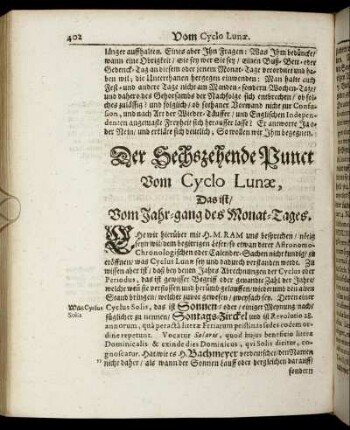 402 Vom Cyclo Lunæ.
länger auffhalten. Eines aber Ihn Fragen: Was Ihm bedüncke/
wann eine Obrigkeit/ sie sey wer sie sey/ einen Buß- Bett- oder
Gedenck-Tag an diesem oder jenem Monat-Tage verordnet und ha-
ben wil; die Unterthanen hergegen einwenden: Man halte auch
Fest- und andere Tage nicht am Monden- sondern Wochen-Tage/
und dahero des Gehorsambs der Nachfolge sich entbrechen/ ob sol-
ches zulässig: und folglich/ ob sothaner Vorwand nicht zur Confu-
sion, und nach Art der Wieder-Täuffer/ und Englischen Indepen-
denten angemaste Freyheit sich heraußer lasse? Er antworte Ja o-
der Nein/ und erkläre sich deutlich/ So wollen wir Ihm begegnen.
Der Sechszehende Punct
Vom Cyclo Lunæ,
Das ist/
Vom Jahr-gang des Monat-Tages.
EHe wir hierüber mit H. M. RAM uns besprechen/ nötig
seyn wil/ dem begierigen Leser/ so etwan derer Astronomo-
Chronologischen oder Calender-Sachen nicht kundig/ zu
eröffnen/ was Cyclus Lunæ sey und dadurch verstanden werde. Zu
wissen aber ist/ daß bey denen Jahrs Abrechnungen der Cyclus oder
Periodus, das ist gewisser Begriff oder genanter Zahl der Jahre/
welche wen sie verflossen und herumb gelauffen/ wied'erumb den alten
Stand bringen/ welcher zuvor gewesen/ zweyfach sey. Deren einer
Was Cyclus Cyclus Solis, das ist Sonnen- oder / einiger Meynung nach/
Solis füglicher zu nennen/ Sontags-Zirckel und ist Revolutio 28.
annorum, quâ peractâ literæ Feriarum pristinas sedes eodem or-
dine repetunt. Vocatur Solaris, quod hujus beneficio litera
Dominicalis & exinde dies Dominicus, qui Solis dicitur, co-
gnoscatur. Hat wie es H. Bachmeyer verdeutschet den Namen
nicht daher/ als wann der Sonnen Lauff oder dergleichen darauff/
sondern